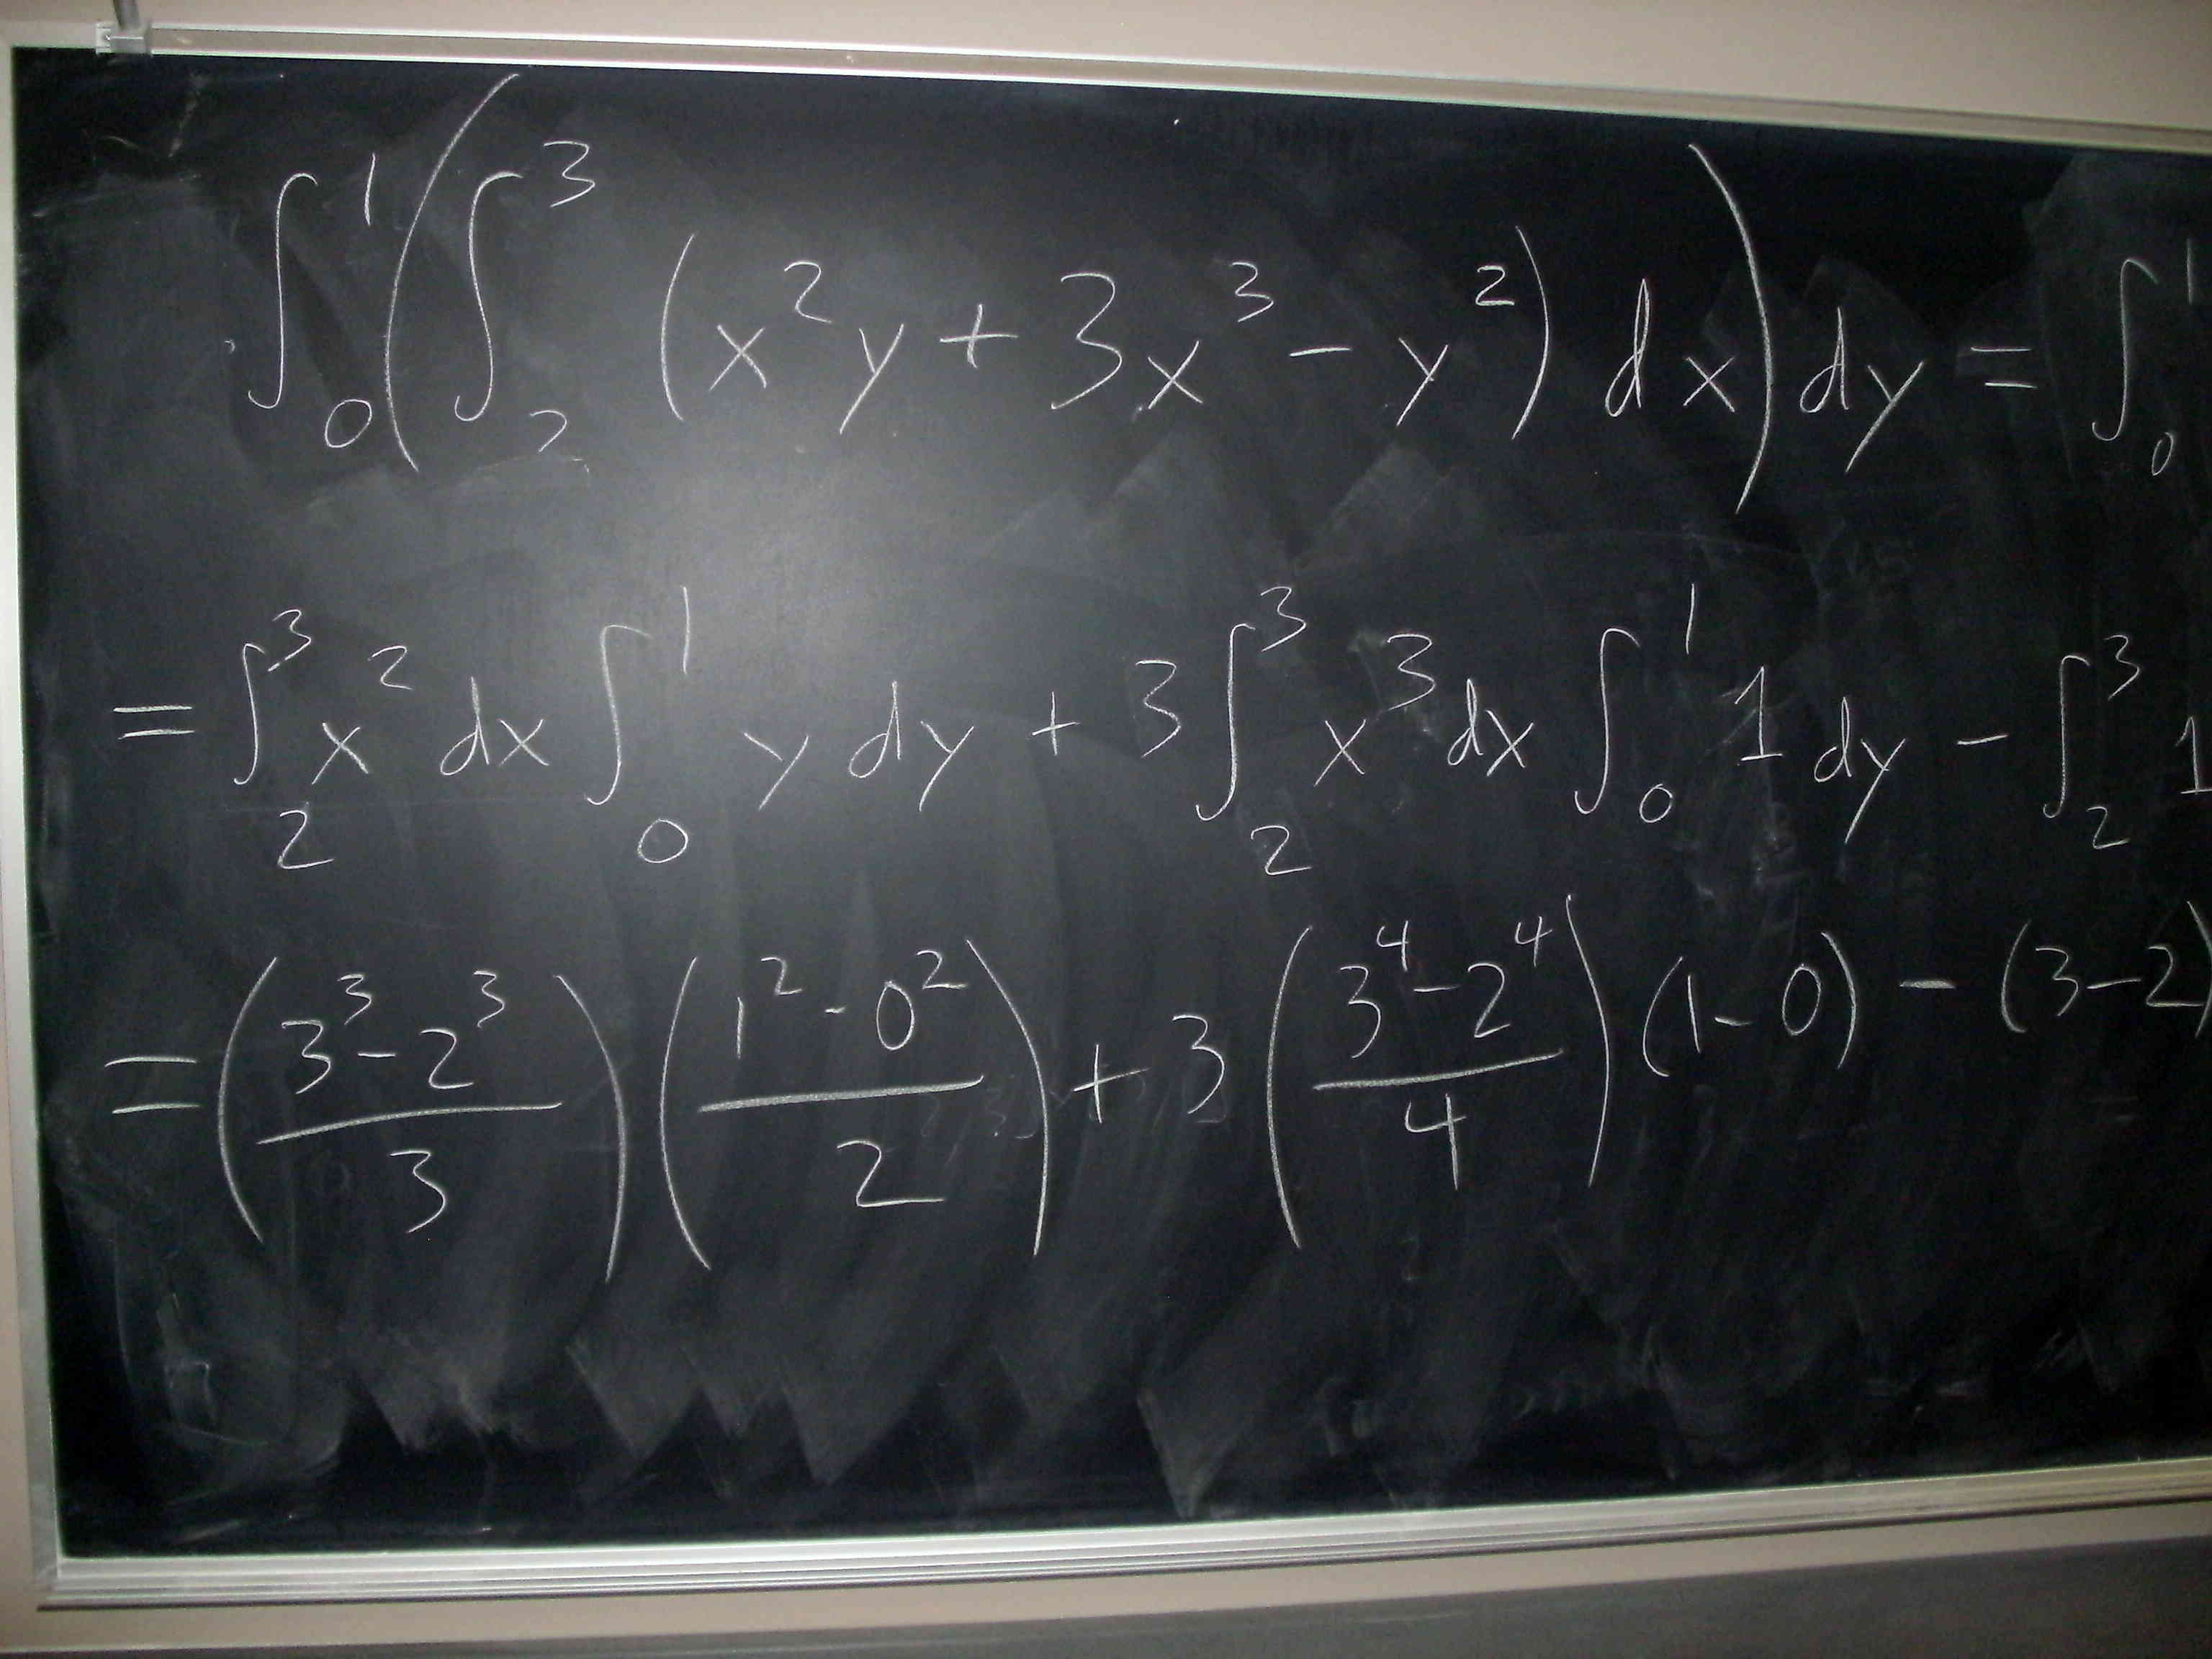 ∫₀¹(∫₂³ (x²y + 3x³ − y²) dx) dy = ∫₀¹
= ∫₂³ x² dx ∫₀¹ y dy + 3 ∫₂³ x³ dx ∫₀¹ 1 dy − ∫₂³ 1
= ((3³ − 2³)/3) ((1² − 0²)/2) + 3 ((3⁴ − 2⁴)/4) (1 − 0) − (3 − 2)